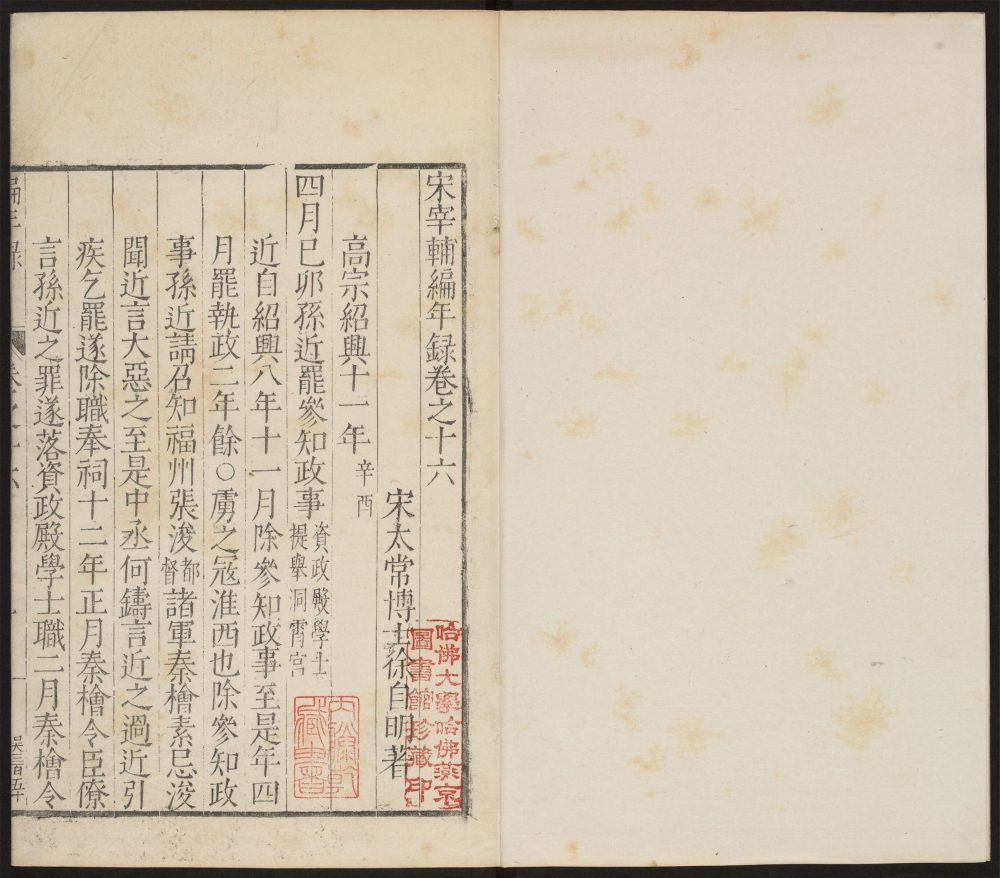 宋宰輔編年録卷之十六
宋太常博士徐自明著
高宗紹興十一年辛酉
四月巳卯孫近罷參知政事資政殿學士提舉洞霄宫
近自紹興八年十一月除參知政事至是年四
月罷執政二年餘○虜之冦淮西也除參知政
事孫近請召知福州張浚都督諸軍秦檜素忌浚
聞近言大惡之至是中丞何鑄言近之過近引
疾乞罷遂除職奉祠十二年正月秦檜令臣僚
言孫近之罪遂落資政殿學士職二月秦檜令
哈佛大學哈佛燕京
圖書館珍藏印